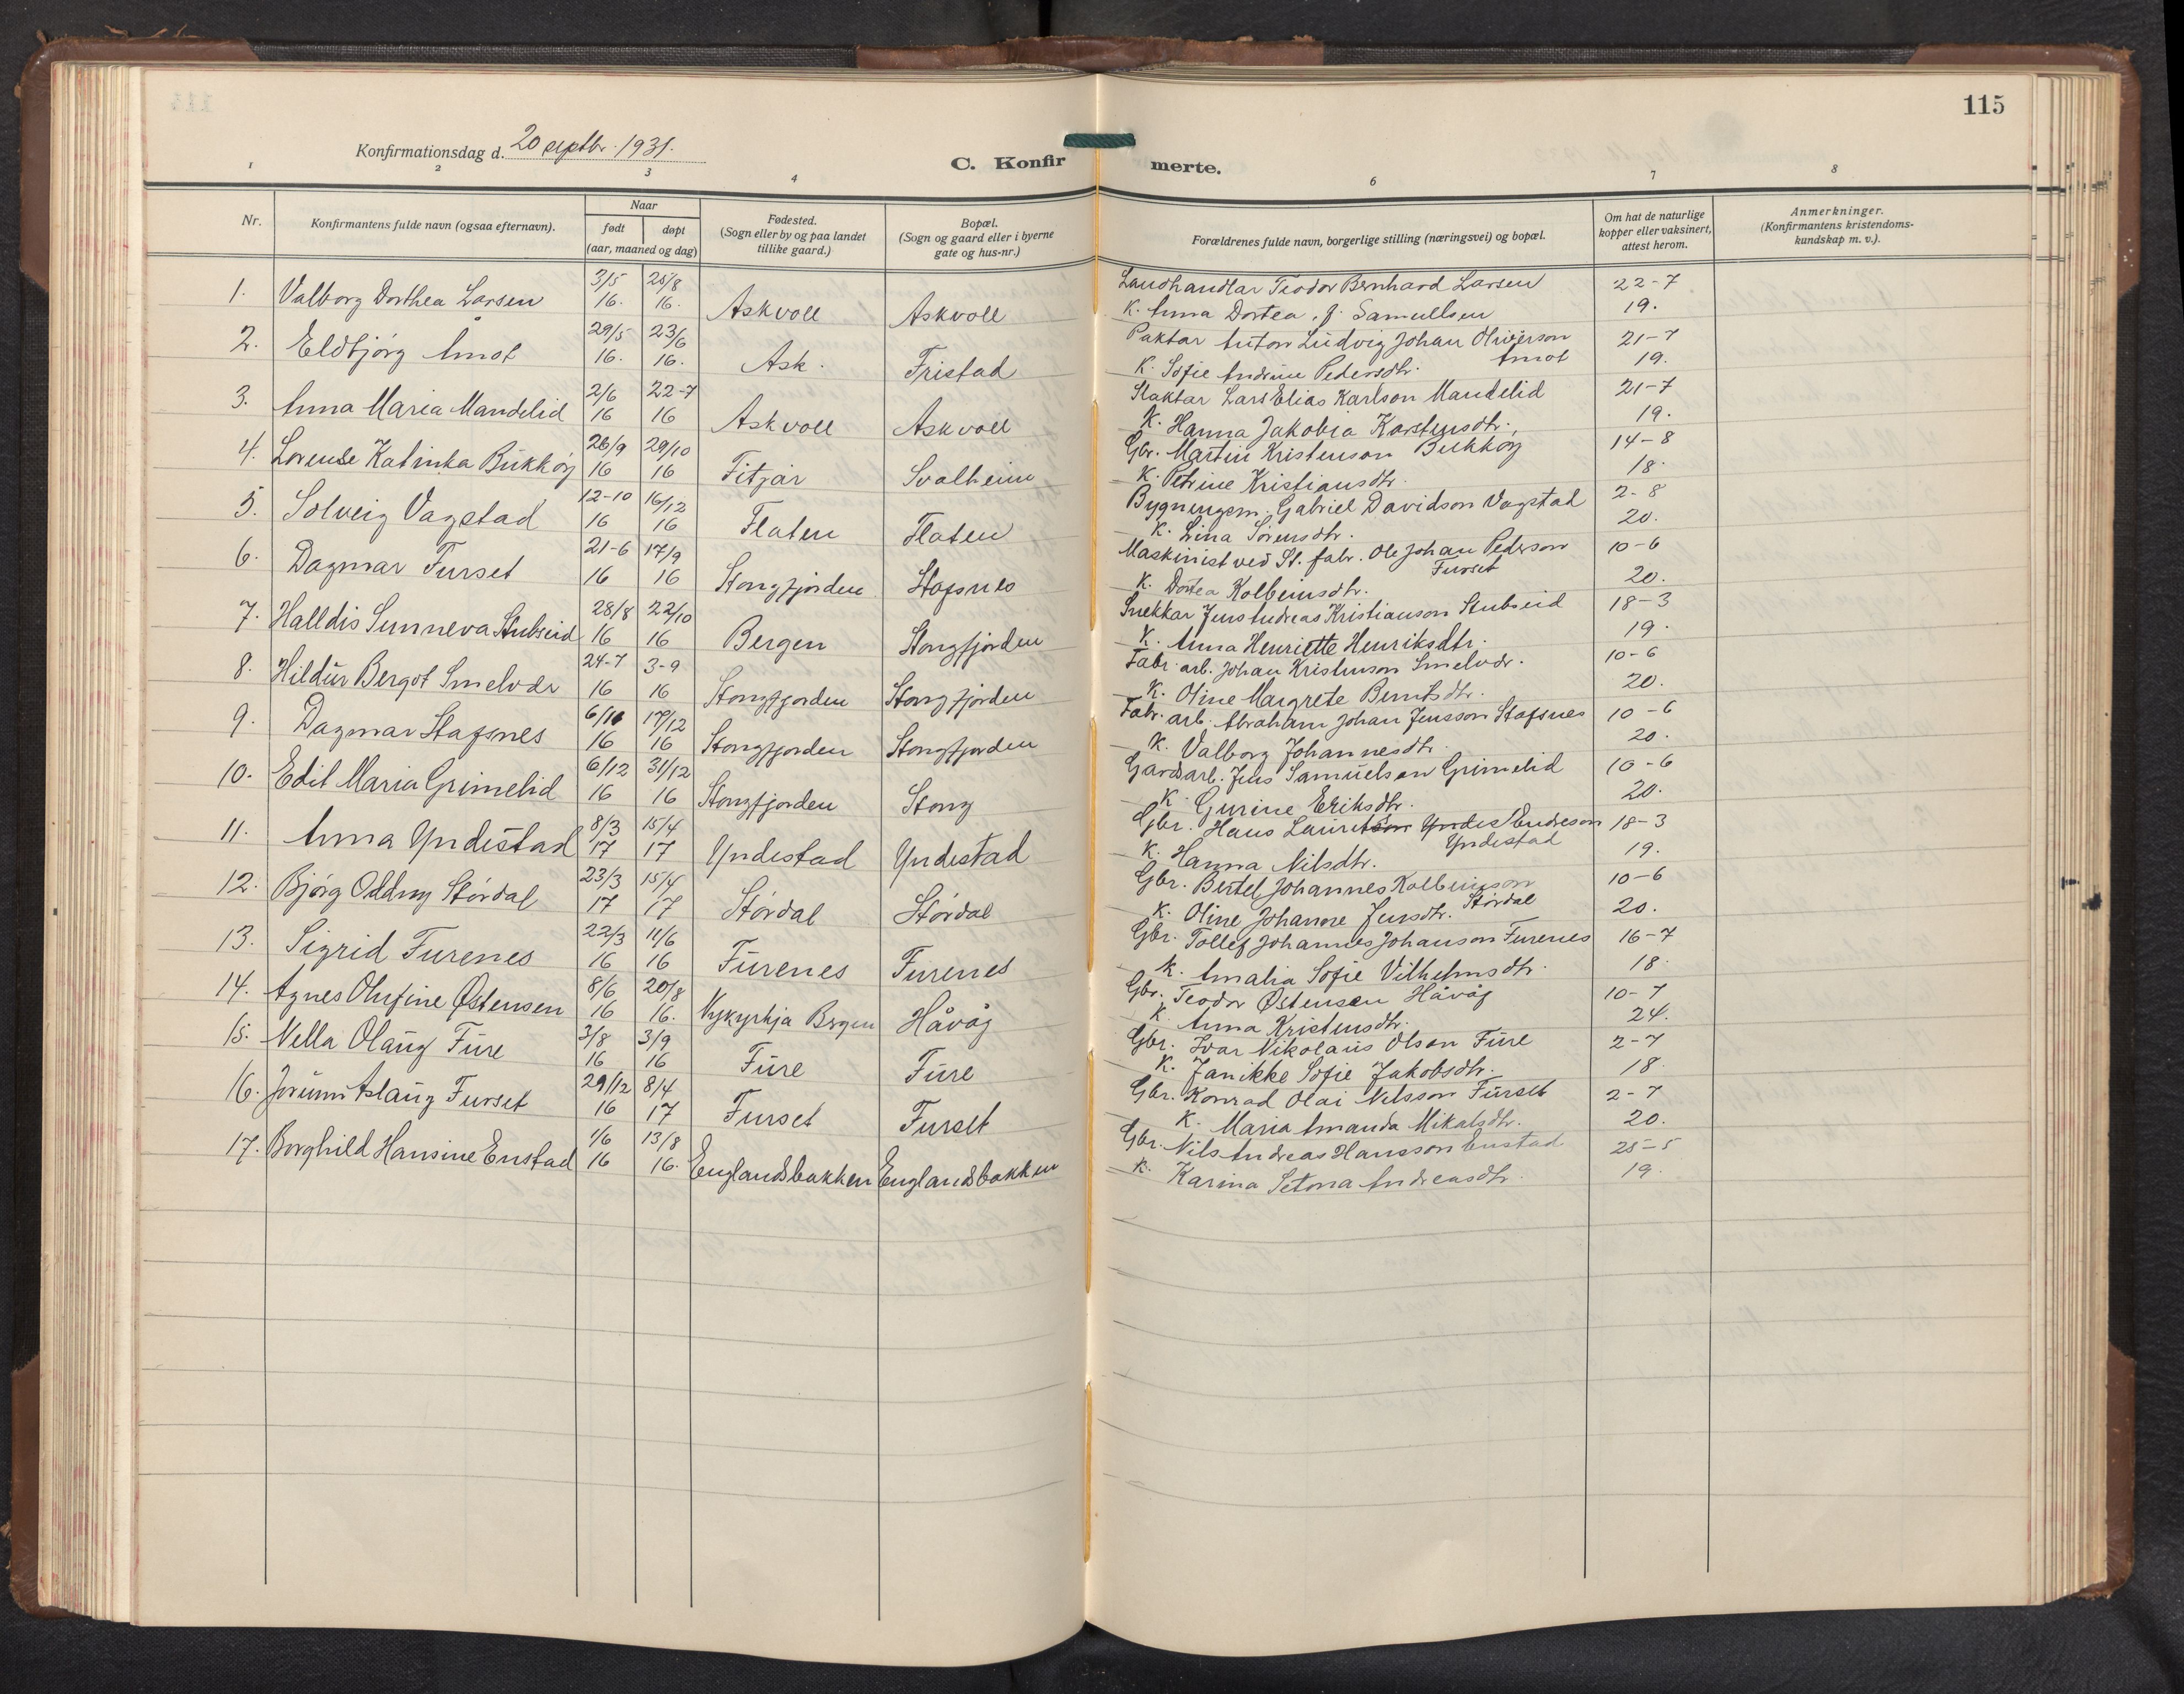 115
Konfirmationsdag d. 20 septbr. 1931.
C. Konfir merte.
1 2 3 4 6 7 8
Nr. Konfirmantens fulde navn (ogsaa efternavn). Naar født døpt (aar, maaned og dag) Fødested. (Sogn eller by og paa landet tillike gaard.) Bopæl. (Sogn og gaard eller i byerne gate og hus-nr.) Forældrenes fulde navn, borgerlige stilling (næringsvei) og bopæl. Om hat de naturlige kopper eller vaksinert, attest herom. Anmerkninger. (Konfirmantens kristendomskundskap m. v.).
1. Valborg Dorthea Larsen 3/5 16. 25/8 16. Askvoll Askvoll Landhandlar Teodor Bernhard Larsen 22-7
K. Anna Dortea J. Samuelsen 19.
2. Eldbjørg Åmot 29/5 16. 23/6 16. Ask. Fristad Paktar Anton Ludvig Johan Oliverson Åmot 21-7
K. Sofie Andrine Pedersdtr. 19.
3. Anna Maria Mandelid 2/6 16 22-7 16 Askvoll Askvoll Slaktar Lars Elias Karlson Mandelid 21-7
K. Hanna Jakobia Karstensdtr. 19.
4. Lorense Katinka Bukkøy 26/9 16 29/10 16 Fitjar Svalheim Gbr. Martin Kristenson Bukkøy 14-8
K. Petrine Kristiansdtr. 18.
5. Solveig Vagstad 12-10 16 16/12 16 Flaten Flaten Bygningsm. Gabriel Davidson Vagstad 2-8
K. Lina Sørensdtr. 20.
6. Dagmar Furset 21-6 16 17/9 16 Stongfjorden Stafsnes Maskinist ved St. fabr. Ole Johan Pederson Furset 10-6
K. Dortea Kolbeinsdtr. 20.
7. Halldis Sunneva Stubseid 28/8 16 22/10 16 Bergen Stongfjorden Snekkar Jens Andreas Kristianson Stubseid 18-3
K. Anna Henriette Henriksdtr. 19.
8. Hildur Bergot Smelvær 24-7 16 3-9 16 Stongfjorden Stongfjorden Fabr. arb. Johan Kristenson Smelvær. 10-6
K. Oline Margrete Berntsdtr. 20.
9. Dagmar Stafsnes 6/11 16 17/12 16 Stongfjorden Stongfjorden Fabr. arb. Abraham Johan Jensson Stafsnes 10-6
K. Valborg Johannesdtr. 20.
10. Edit Maria Grimelid 6/12 16 31/12 16 Stongfjorden Stong Gardsarb. Jens Samuelson Grimelid 10-6
K. Gurine Eriksdtr. 20.
11. Anna Yndestad 8/3 17 15/4 17 Yndestad Yndestad Gbr. Hans Lauritson Yndes Endreson Yndestad 18-3
K. Hanna Nilsdtr. 19.
12. Bjørg Oddny Stórdal 23/3 17 15/4 17 Stórdal Stórdal Gbr. Bertel Johannes Kolbeinson Stórdal 10-6
K. Oline Johanne Jensdtr. 20.
13. Sigrid Furenes 22/3 16 11/6 16 Furenes Furenes Gbr. Tollef Johannes Johanson Furenes 16-7
K. Amalia Sofie Vilhelmsdtr. 18.
14. Agnes Olufine Østensen 8/6 16 20/8 16. Nykyrkja Bergen Håvåg Gbr. Teodor Østensen Håvåg 10-7
K. Anna Kristensdtr. 24.
15. Nella Olaug Fure 3/8 16 3/9 16 Fure Fure Gbr. Ivar Nikolaus Olson Fure 2-7
K. Janikke Sofie Jakobsdtr. 18.
16. Jorunn Aslaug Furset 29/12 16 8/4 17 Furset Furset Gbr. Konrad Olai Nilsson Furset 2-7
K. Maria Amanda Mikalsdtr. 20.
17. Borghild Hansine Enstad 1/6 16 13/8 16. Englandsbakken Englandsbakken Gbr. Nils Andreas Hansson Enstad 25-5
K. Karina Setona Andreasdtr. 19.